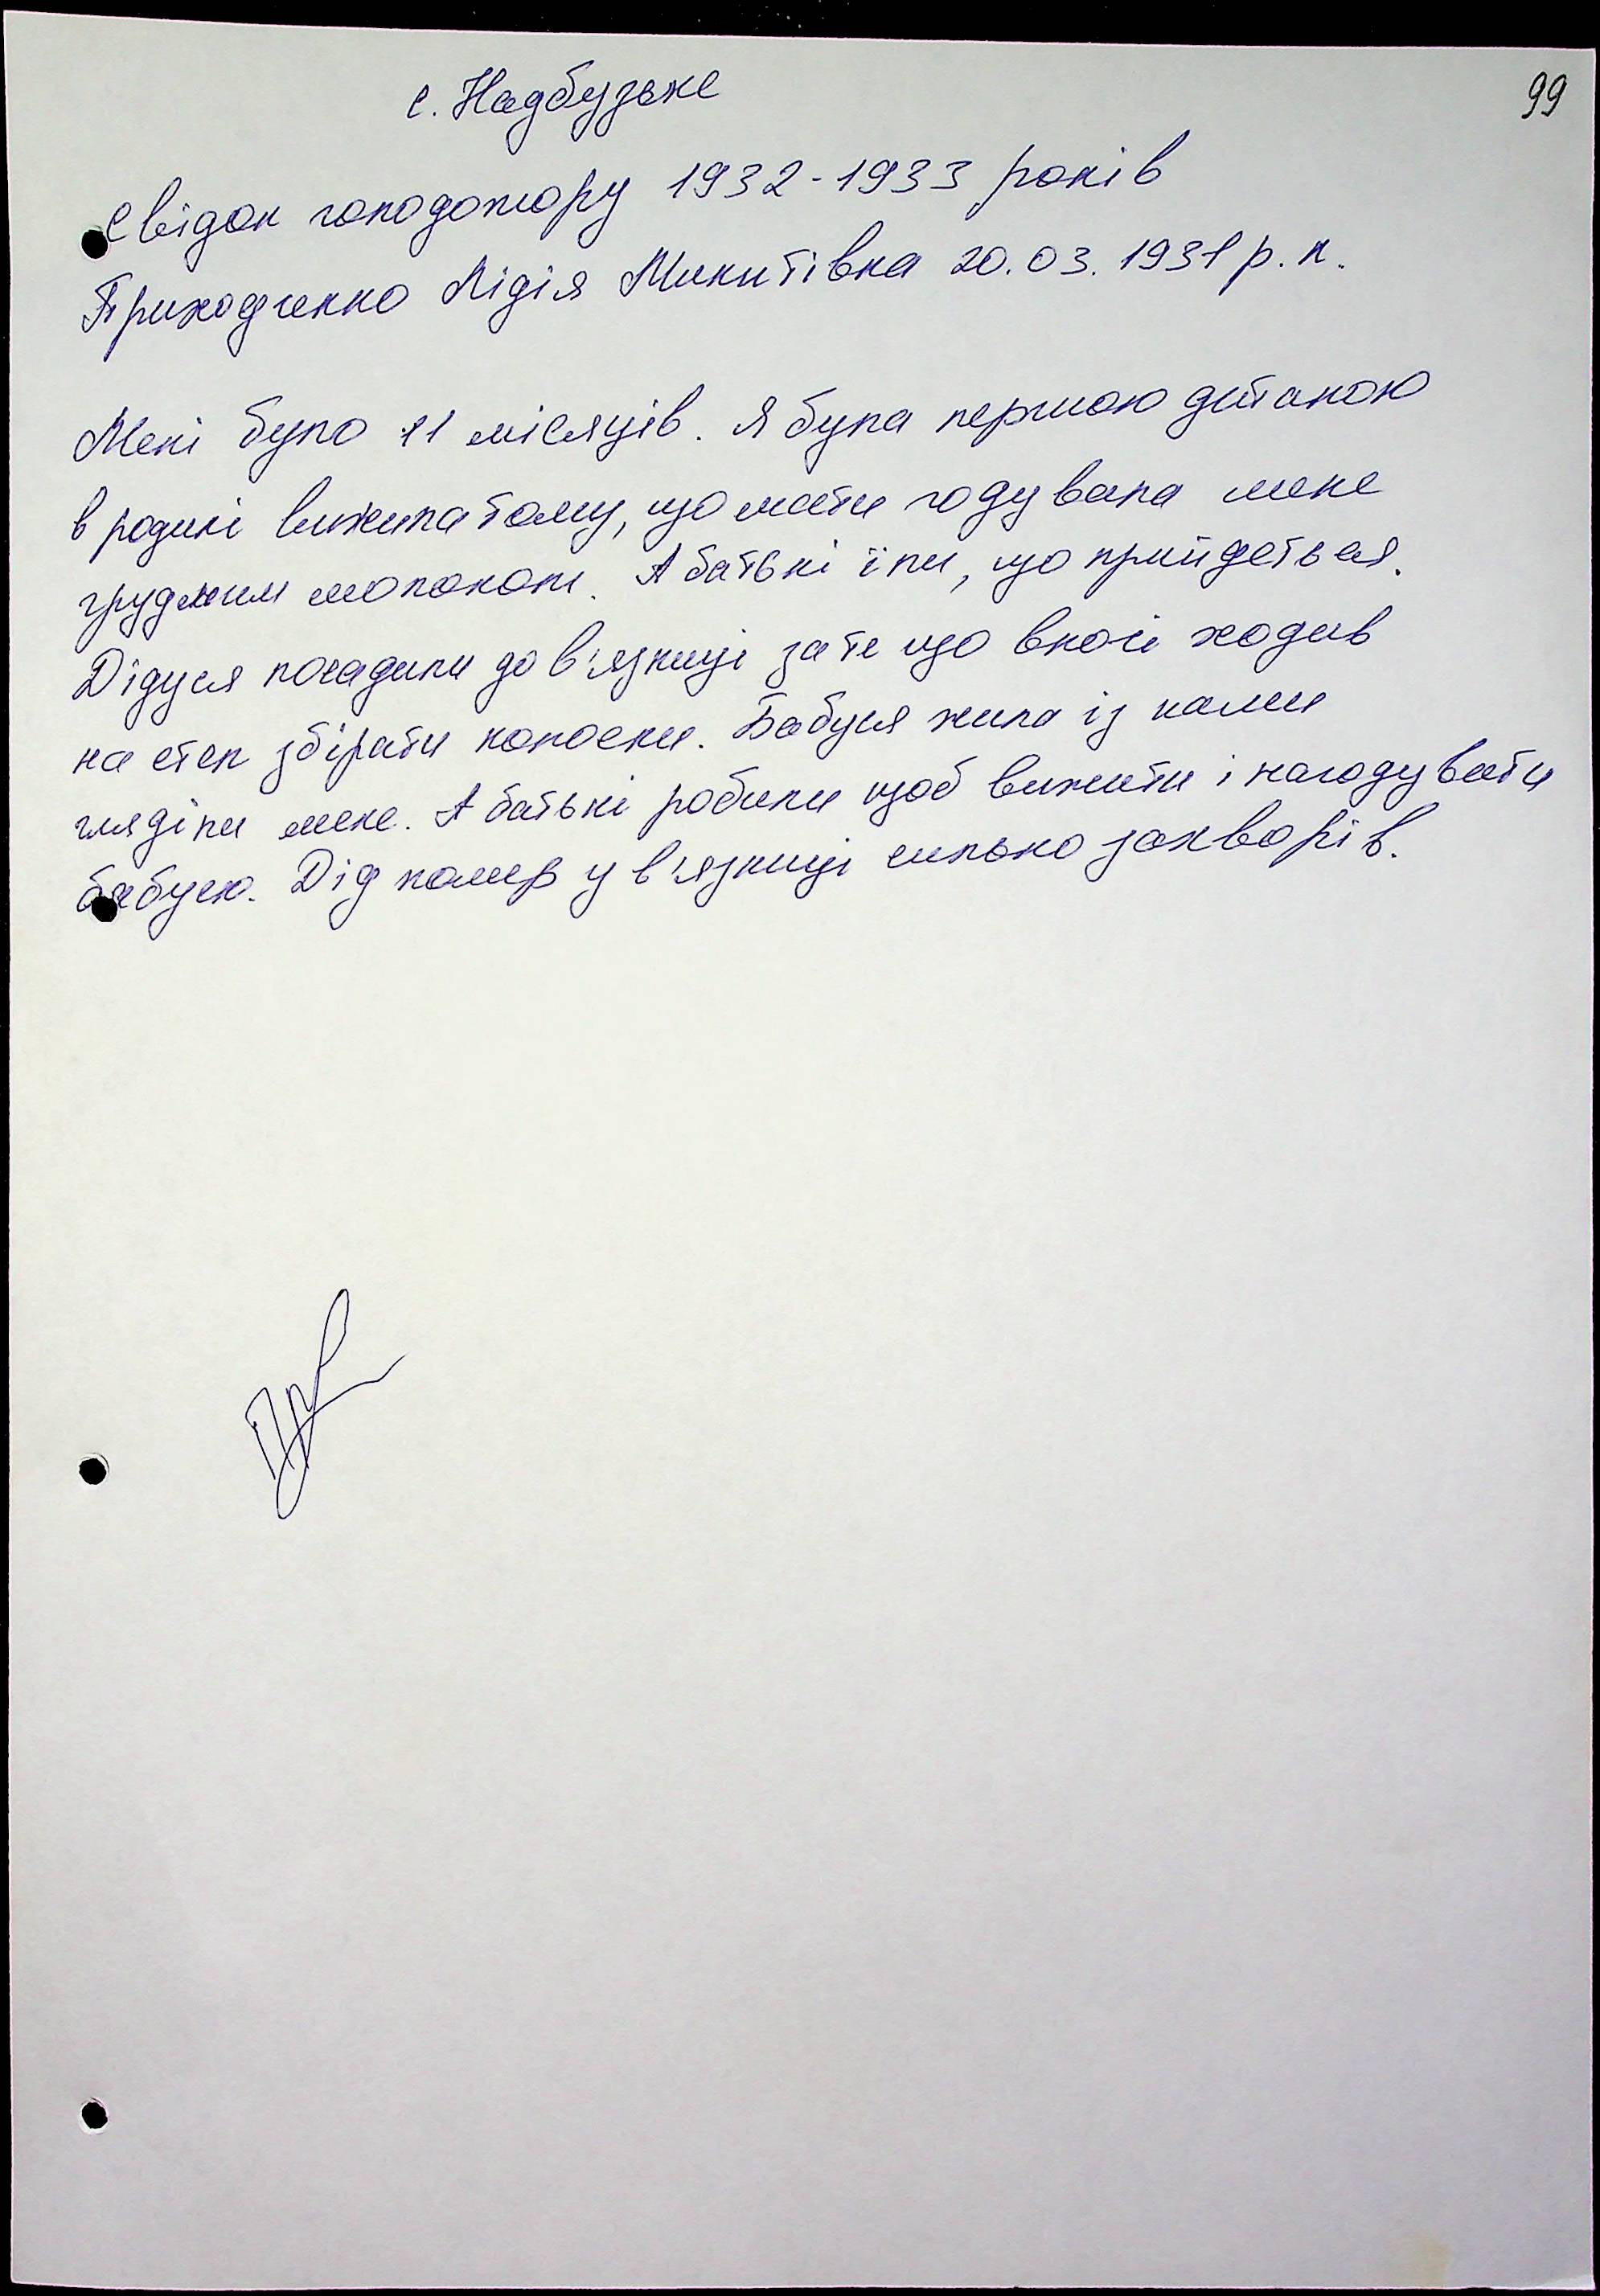 с. Надбузьке
99
Свідок голодомору 1932-1933 років
Приходченко Лідія Микитівна 20.03.1931 р. н.
Мені було 11 місяців. Я була першою дитиною
в родині вижила тому, що мати годувала мене
грудним молоком. А батькі їли, що прийдеться.
Дідуся посадили до в'язниці за те що вночі ходив
на степ збірати колоски. Бабуся жила із нами
гляділи мене. А батькі робили щоб вижити і нагодувати
бабусю. Дід помер у в'язниці сильно захворів.